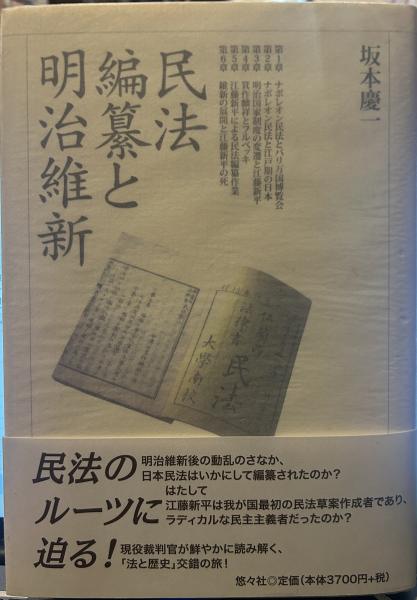 坂本慶一
第1章　ナポレオン民法とパリ万国博覧会
第2章　ナポレオン民法と江戸期の日本
第3章　明治国家制度の変遷と江藤新平
第4章　箕作麟祥とブスケ
第5章　江藤新平による民法編纂作業
第6章　維新の展開と江藤新平の死
民法
編纂と
明治維新
佛蘭西
法律書
民法
大學南校
民法の
ルーツに
迫る!
明治維新後の動乱のさなか、
日本民法はいかにして編纂されたのか?
はたして
江藤新平は我が国最初の民法草案作成者であり、
ラディカルな民主主義者だったのか?
現役裁判官が鮮やかに読み解く、
「法と歴史」交錯の旅!
悠々社◎定価(本体3700円+税)